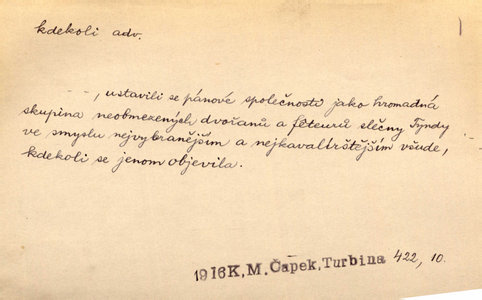 kdekoli adv.
- , ustavili se pánové společnosti jako hromadná
skupina neobmezených dvořanů a flteurů slečny Tyndy
ve smyslu nejvybranějším a nejkavalírštějším všude,
kdekoli se jenom objevila.
1916K,M.Čapek,Turbina 422, 10.